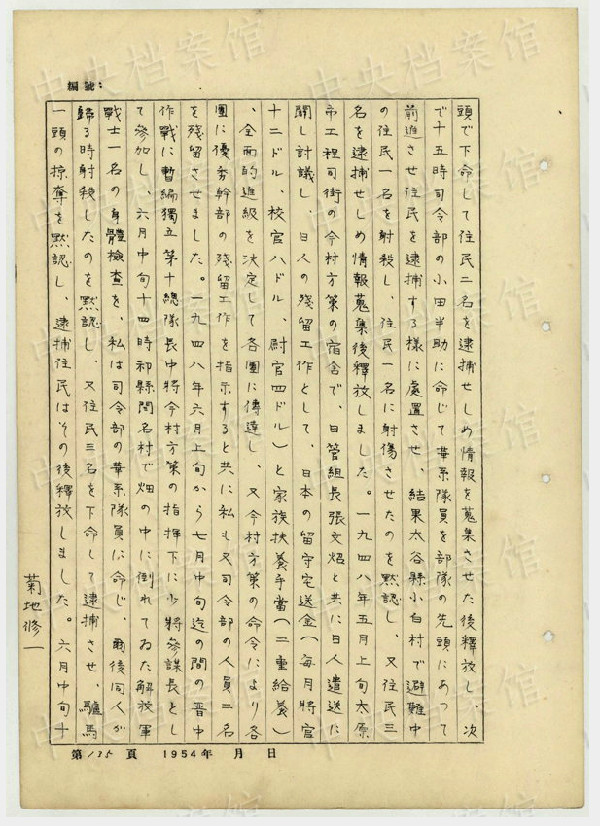 編號：
頭で下命して住民二名を逮捕せしめ情報を蒐集させた後釋放し、次
で十五時司令部の小田半助に命じて華系隊員を部隊の先頭にあつて
前進させ住民を逮捕する様に處置させ、結果太谷縣小白村で避難中
の住民一名を射殺し、住民一名に射傷させたのを黙認し、又住民三
名を逮捕せしめ情報蒐集後釋放しました。一九四八年五月上旬太原
市工程司街の今村方策の宿舍で、日管組長張文炤と共に日人遣送に
関し討議し、日人の残留工作として、日本の留守宅送金（每月將官
十二ドル、校官八ドル、尉官四ドル）と家族扶養手當（二重給養）
、全面的進級を决定して各團に傳達し、又今村方策の命令により各
團に優秀幹部の残留工作を指示すると共に私も又司令部の人員二名
を残留させました。一九四八年六月上旬から七月中旬迄の間の晋中
作戰に暫編獨立第十總隊長中將今村方策の指揮下に少將參謀長とし
て参加し、六月中旬十四時祁縣閻名村で畑の中に倒れてゐた解放軍
戰士一名の身體檢查を、私は司令部の華系隊員に命じ、爾後同人が
歸る時射殺したのを黙認し、又住民三名を下命して逮捕させ、驢馬
一頭の掠奪を黙認し、逮捕住民はその後釋放しました。六月中旬十
菊地修一
第135頁 1954年 月 日
中央档案馆